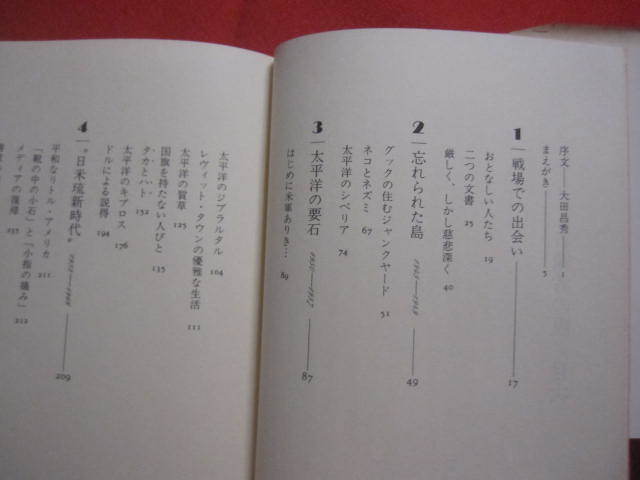 序文――大田昌秀 1
まえがき 5
1 戦場での出会い 17
おとなしい人たち 19
二つの文書
厳しく、しかし慈悲深く 40
2 忘れられた島 49
グックの住むジャンクヤード 51
ネコとネズミ 67
太平洋のシベリア 74
3 太平洋の要石 87
はじめに米軍ありき… 89
太平洋のジブラルタル 104
レヴィット・タウンの優雅な生活 111
太平洋の質草 125
国旗を持たない人びと 135
タカとハト 152
太平洋のキプロス 176
ドルによる説得 194
4 "日米琉新時代" 209
平和なリトル・アメリカ 211
「靴の中の小石」と「小指の痛み」 212
メディアの復帰